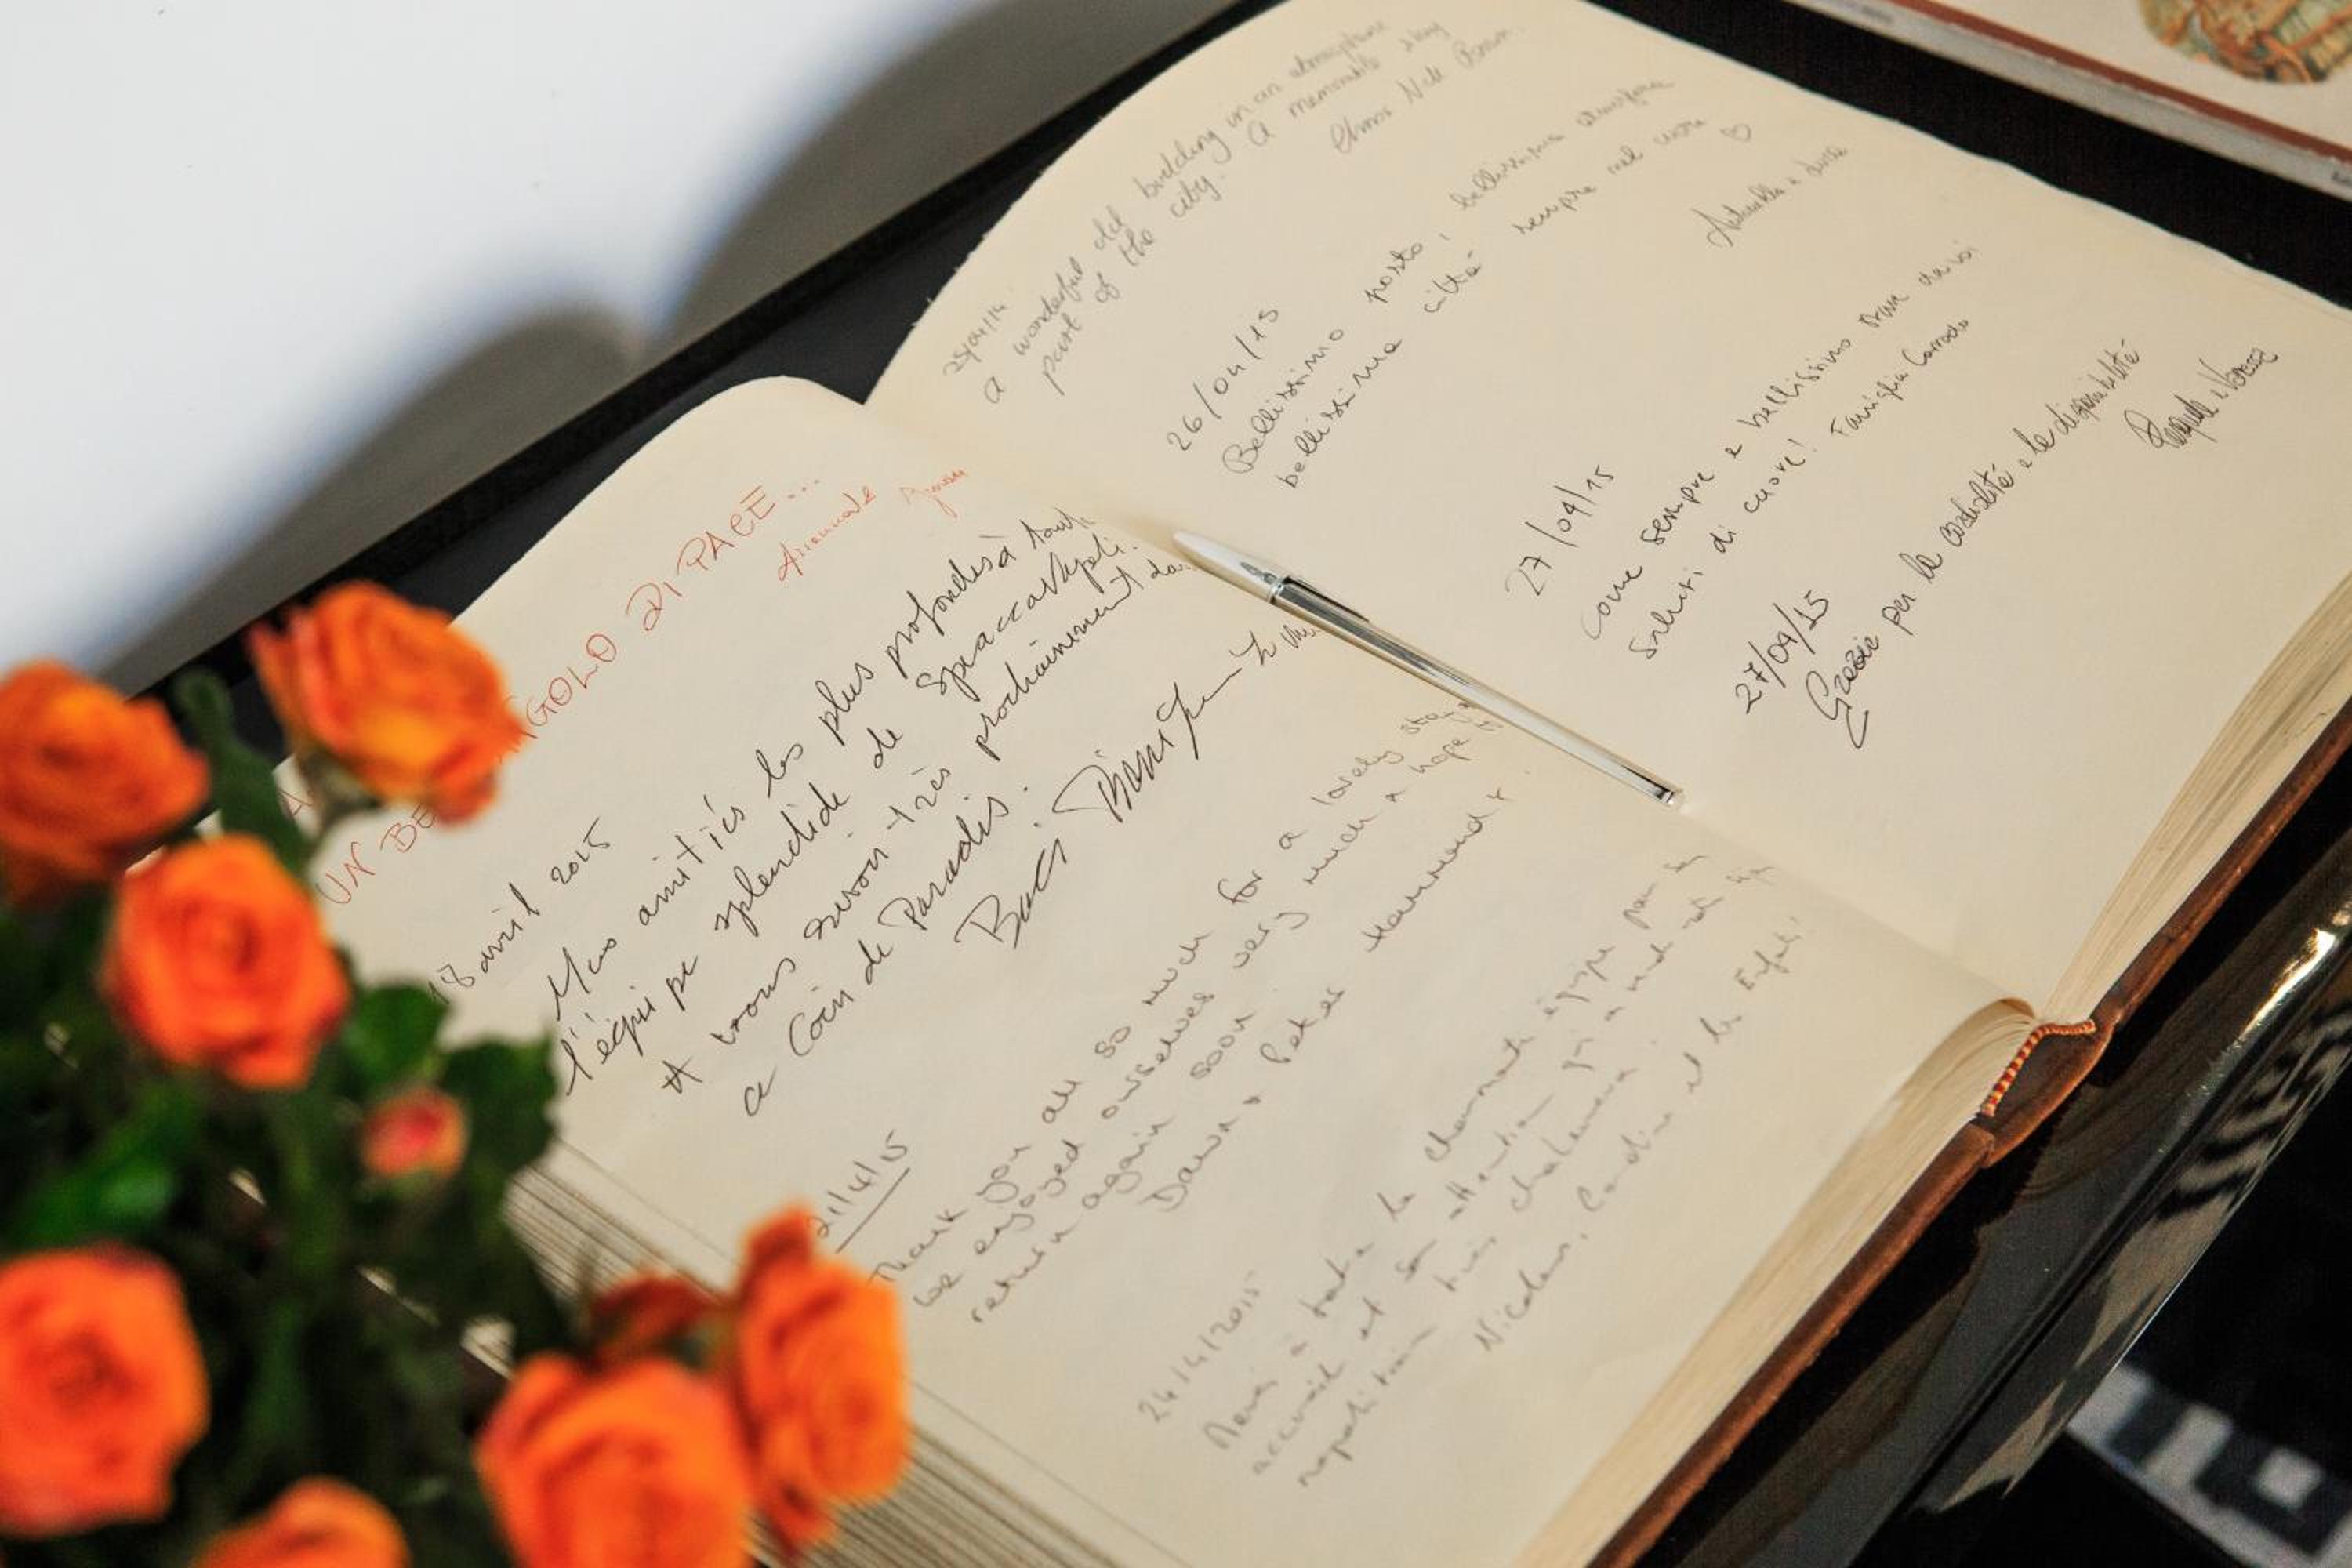 UN BE NGOLO DI PACE...
18 avril 2015
Mes amitiés les plus profondes à tout
l'équipe splendide de Spaccanapoli.
A vous revoir très prochainement da
ce Coin de Paradis.
Baci
21/4/15
Thank you all so much for a lovely stay
we enjoyed ourselves very much & hope to
return again soon.
Dawn & Peter Hammond x
24/4/2015
Merci à toute la charmante équipe pour
accueil et son attention qui a rendu
napolitain très chaleureux.
Nicolas, Caroline et les Enfants!
25/04/14
a wonderful old building in an atmosphere
part of the city. A memorable stay
26/04/15
Bellissimo posto, bellissima atmosfera
bellissima città sempre nel cuore ♡
27/04/15
Come sempre e bellissimo stare da voi
Saluti di cuore! Famiglia Corrado
27/04/15
Grazie per la cordialità e la disponibilità